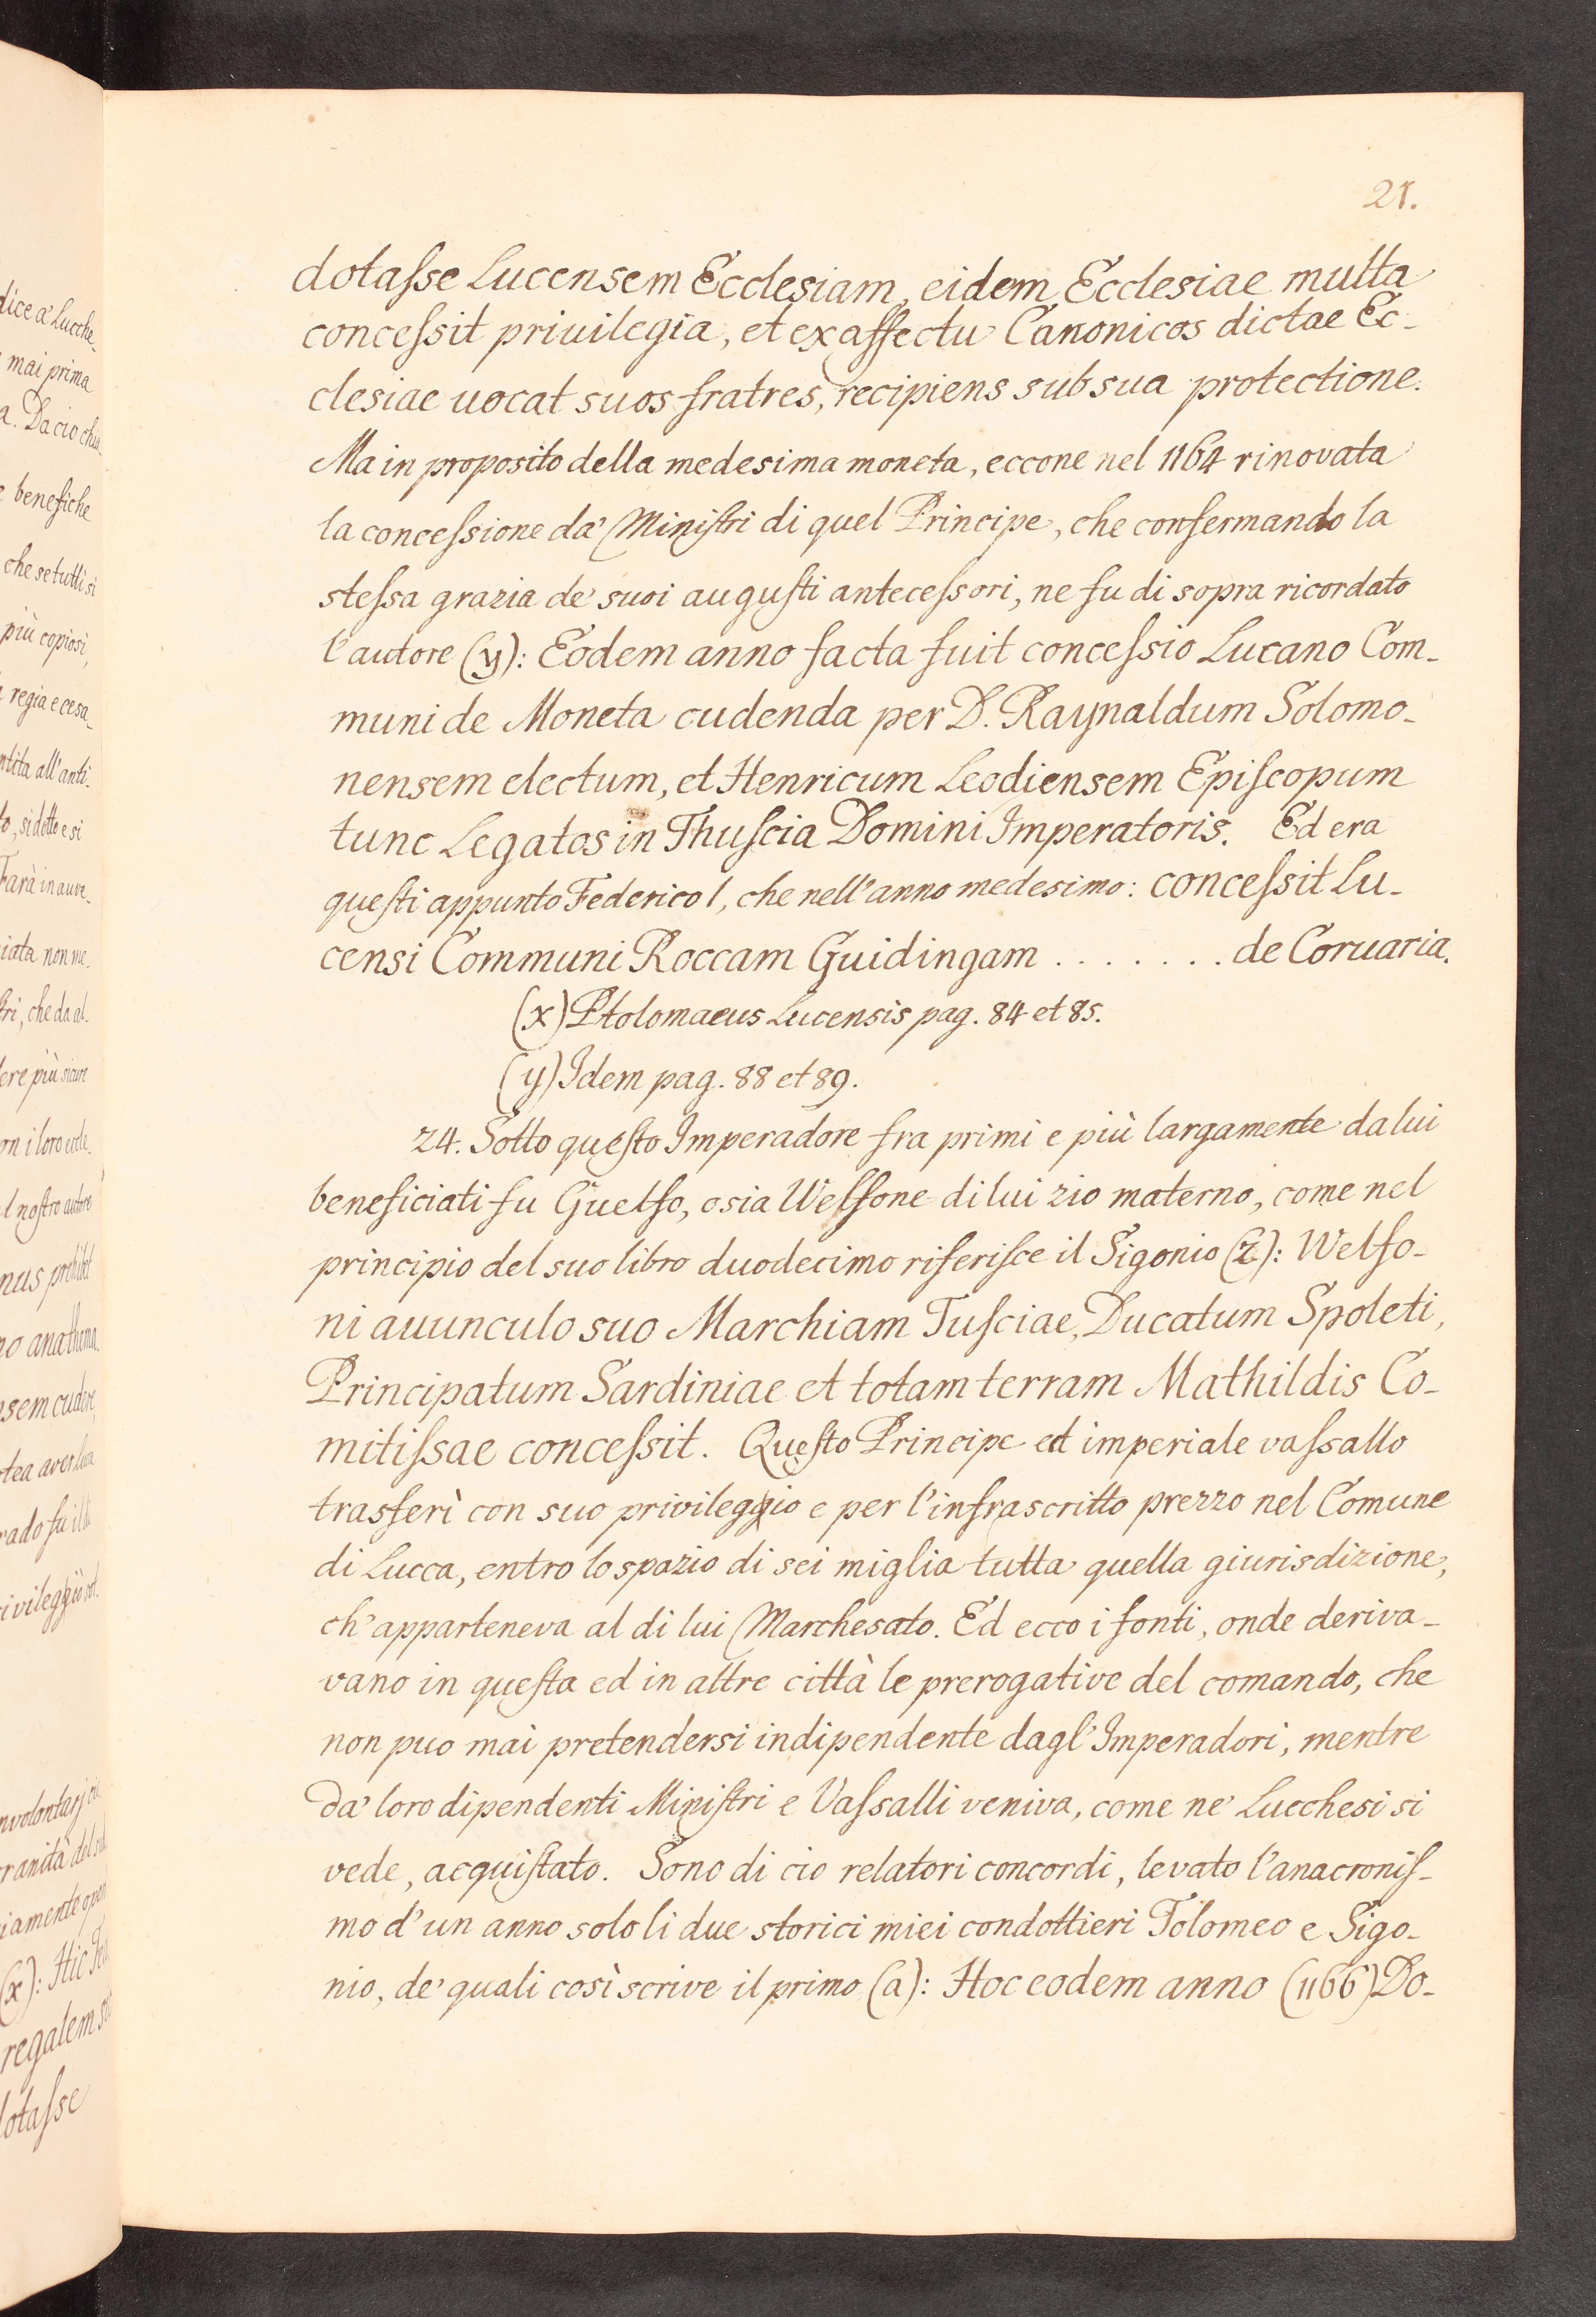 21.
dotaſse Lucensem Ecclesiam, eidem Ecclesiae multa
conceſsit priuilegia, et ex affectu Canonicos dictae Ec-
clesiae uocat suos fratres, recipiens sub sua protectione.
Ma in proposito della medesima moneta, eccone nel 1164 rinovata
la conceſsione da' Miniſtri di quel Principe, che confermando la
steſsa grazia de' suoi auguſti anteceſsori, ne fu di sopra ricordato
l'autore (y): Eodem anno facta fuit conceſsio Lucano Com-
muni de Moneta cudenda per D. Raynaldum Solomo-
nensem electum, et Henricum Leodiensem Epiſcopum
tunc Legatos in Thuſcia Domini Imperatoris. Ed era
queſti appunto Federico I, che nell'anno medesimo: conceſsit Lu-
censi Communi Roccam Guidingam . . . . . . . de Coruaria.
(x) Ptolomaeus Lucensis pag. 84 et 85.
(y) Idem pag. 88 et 89.
24. Sotto queſto Imperadore fra primi e più largamente da lui
beneficiati fu Guelfo, o sia Welfone di lui zio materno, come nel
principio del suo libro duodecimo riferiſce il Sigonio (z): Welfo-
ni auunculo suo Marchiam Tuſciae, Ducatum Spoleti,
Principatum Sardiniae et totam terram Mathildis Co-
mitiſsae conceſsit. Queſto Principe ed imperiale vaſsallo
trasferì con suo privileggio e per l'infrascritto prezzo nel Comune
di Lucca, entro lo spazio di sei miglia tutta quella giurisdizione,
ch'apparteneva al di lui Marchesato. Ed ecco i fonti, onde deriva-
vano in queſta ed in altre città le prerogative del comando, che
non puo mai pretendersi indipendente dagl'Imperadori, mentre
da' loro dipendenti Miniſtri e Vaſsalli veniva, come ne' Lucchesi si
vede, acquiſtato. Sono di cio relatori concordi, levato l'anacroniſ-
mo d'un anno solo li due storici miei condottieri Tolomeo e Sigo-
nio, de' quali così scrive il primo (a): Hoc eodem anno (1166) Do-